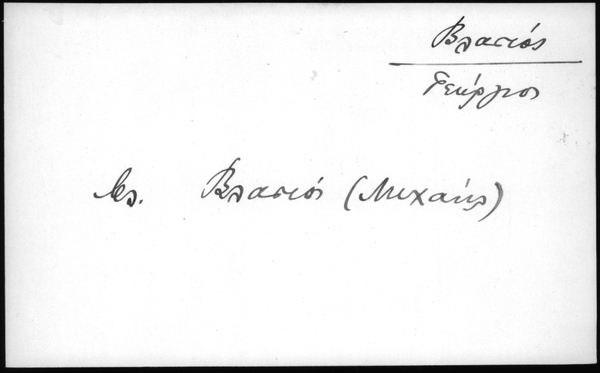 Βλαστός
Γεώργιος
βλ. Βλαστός (Μιχαήλ)